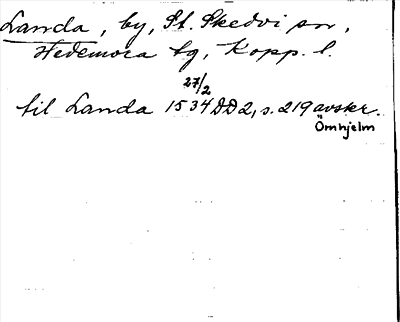 Landa, by, St. Skedvi sn,
Hedemora tg, Kopp. l.
27/2
til Landa 1534 DD2, s. 219 avskr.
Örnhjelm